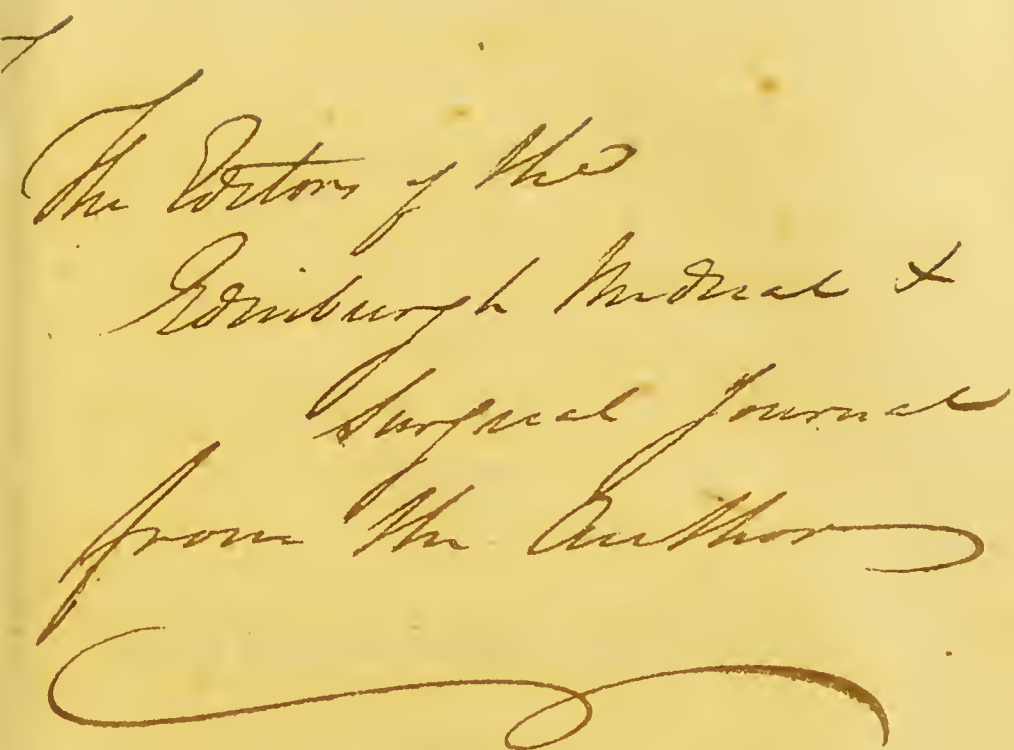 The Editors of the
Edinburgh Medical &
Surgical Journal
from the Author